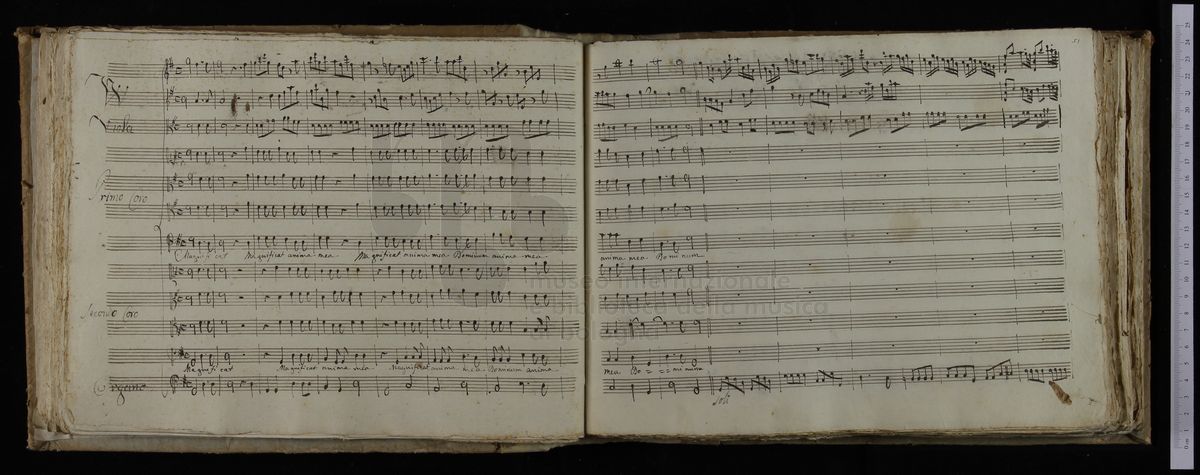 51
VV
Viola
Primo Coro
Magnificat Magnificat anima mea Magnificat anima mea Dominum anima mea
anima mea Dominum
Secondo Coro
Magnificat Magnificat anima mea Magnificat anima mea Dominum anima
mea Do = = = minum
Organo
soli
museo internazionale
e biblioteca della musica
di bologna